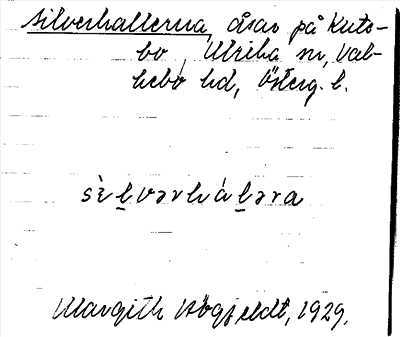 Silverhallerna, åsar på Kuts-
bo, Ulrika sn, Val-
kebo hd, Österg. l.
sèlvərhálərа
Margith Högfeldt, 1929.